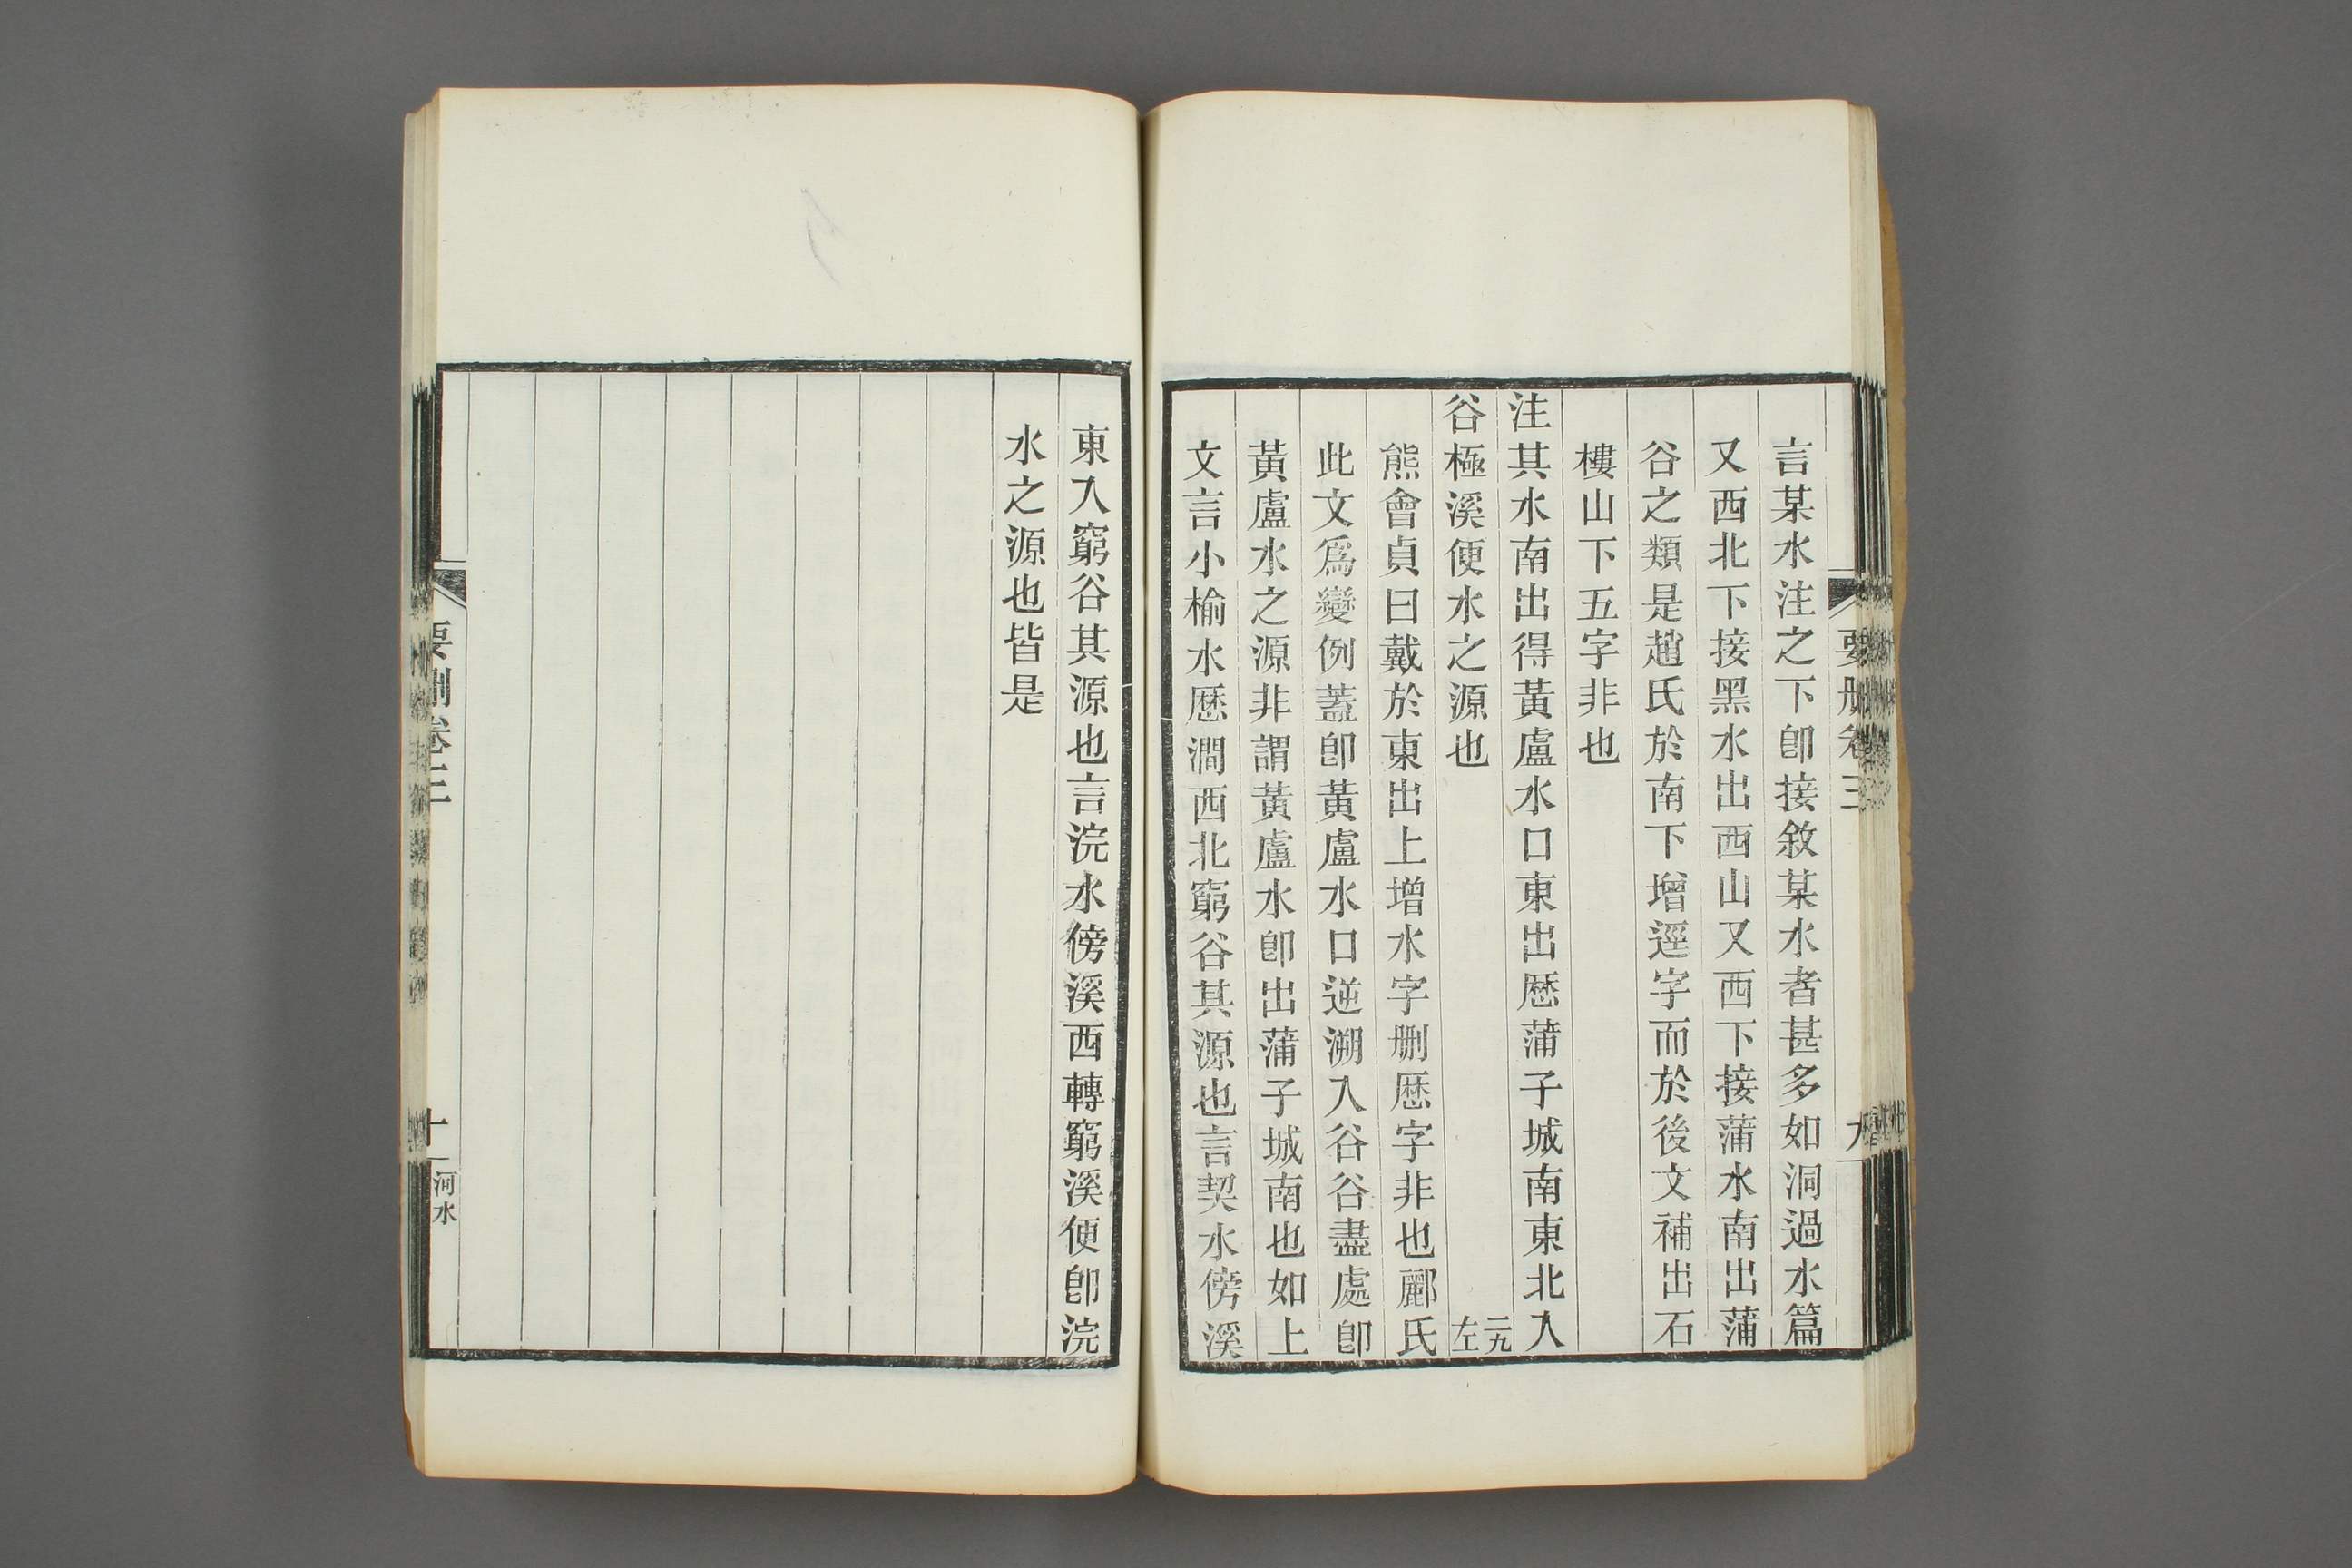 要刪卷三
九
言某水注之下卽接敘某水者甚多如洞過水篇
又西北下接黑水出西山又西下接蒲水南出蒲
谷之類是趙氏於南下增逕字而於後文補出石
樓山下五字非也
注其水南出得黃盧水口東出歷蒲子城南東北入
谷極溪便水之源也 二九左
熊會貞曰戴於東出上增水字刪歷字非也酈氏
此文爲變例蓋卽黃盧水口逆溯入谷谷盡處卽
黃盧水之源非謂黃盧水卽出蒲子城南也如上
文言小榆水歷澗西北窮谷其源也言契水傍溪
東入窮谷其源也言浣水傍溪西轉窮溪便卽浣
水之源也皆是
要刪卷三
十
河水